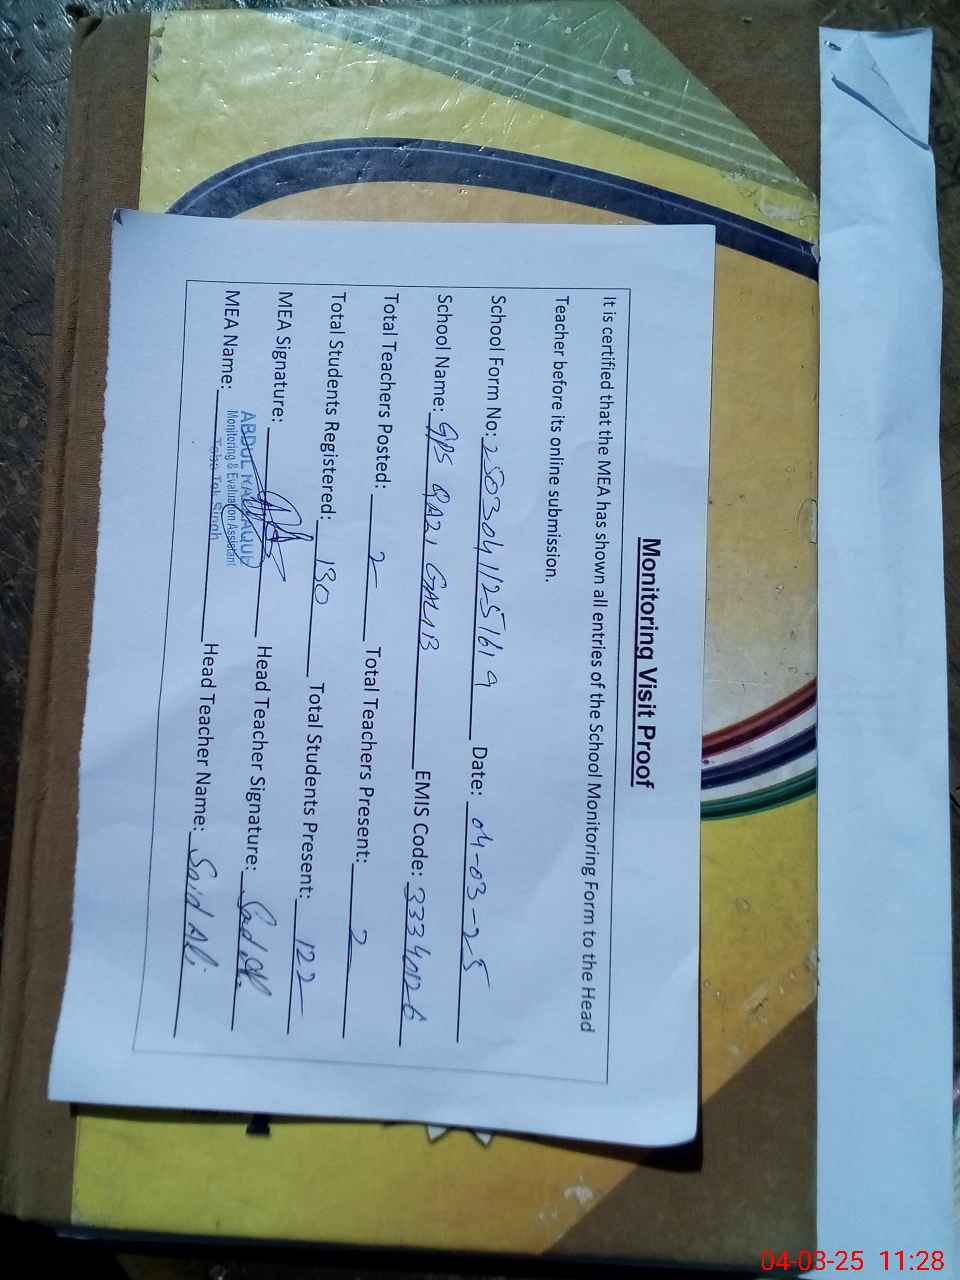 Monitoring Visit Proof
It is certified that the MEA has shown all entries of the School Monitoring Form to the Head
Teacher before its online submission.
School Form No: 25030411251619 Date: 04-03-25
School Name: GPS QAZI GALIB EMIS Code: 33340126
Total Teachers Posted: 2 Total Teachers Present: 2
Total Students Registered: 130 Total Students Present: 122
MEA Signature: Head Teacher Signature:
MEA Name: ABDUL Head Teacher Name: Said Ali
Monitoring & Evaluation Assistant
Toba Tek Singh
04-03-25 11:28